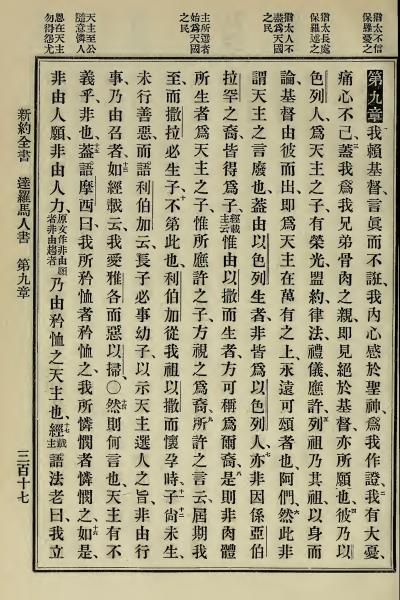 猶太不信
保羅憂之
猶太長處
保羅述之
猶太人不
盡爲天國
之民
主所選者
始爲天國
之民
天主至公
隨意憐人
恩在天主
勿得怨尤
第九章 我賴基督、言眞而不誑、我內心感於聖神、爲我作證、二我有大憂、
痛心不已、三蓋我爲我兄弟骨肉之親、卽見絕於基督、亦所願也、四彼乃以
色列人、爲天主之子、有榮光盟約律法禮儀應許、五列祖乃其祖、以身而
論、基督由彼而出、卽爲天主在萬有之上、永遠可頌者也、阿們、六然此非
謂天主之言廢也、蓋由以色列生者、非皆爲以色列人、七亦非因係亞伯
拉罕之裔、皆得爲子、經載主云惟由以撒而生者、方可稱爲爾裔、八是則非肉體
所生者爲天主之子、惟所應許之子、方視之爲裔、九所許之言云、屆期我
至、而撒拉必生子、十不第此也、利伯加從我祖以撒而懷孕時、十一子尙未生、
未行善惡、而語利伯加云、長子必事幼子、以示天主選人之旨、非由行
事、乃由召者、十三如經載云、我愛雅各而惡以掃、〇十四然則何言也、天主有不
義乎、非也、十五蓋語摩西曰、我所矜恤者矜恤之、我所憐憫者憐憫之、十六如是、
非由人願、非由人力、原文作非由願者非由趨者乃由矜恤之天主也、十七經載主語法老曰、我立
新約全書 達羅馬人書 第九章 三百十七